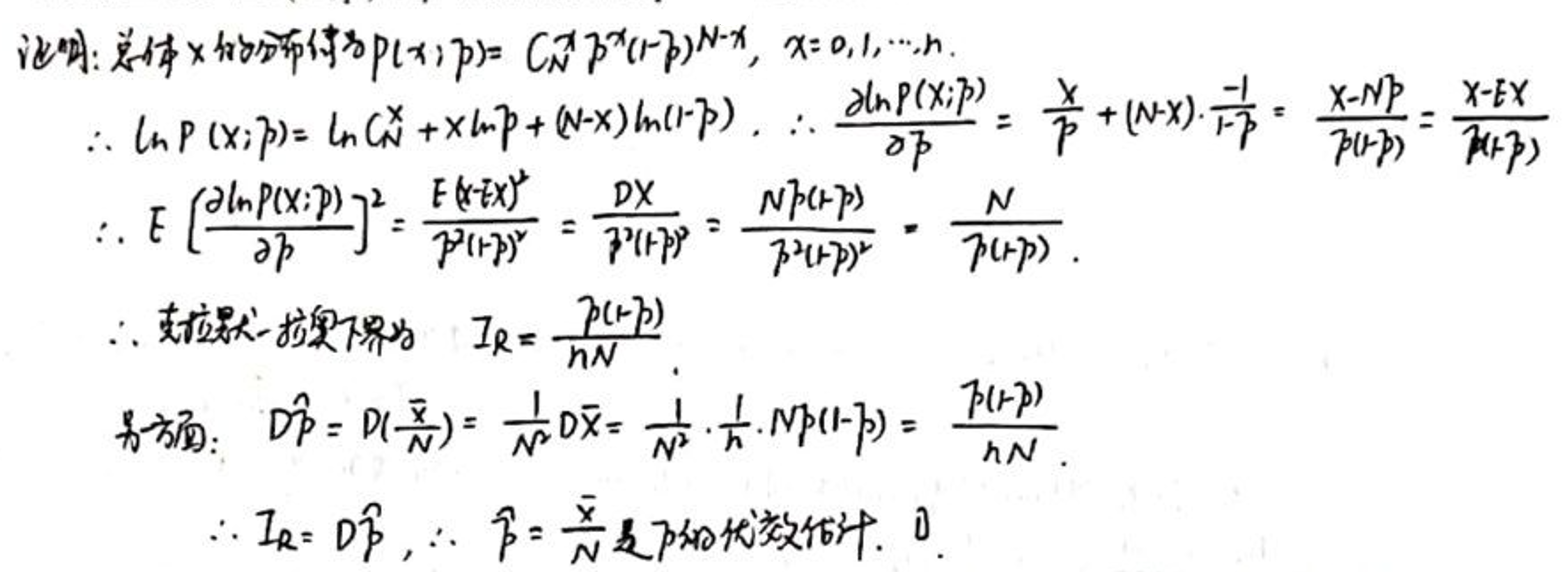 证明: 总体X的分布律为P(x;p)= C_N^x p^x(1-p)^{N-x}, x=0,1,…,n.
∴ ln P(X;p)= ln C_N^X + X ln p + (N-X) ln(1-p). ∴ ∂lnP(X;p)/∂p = X/p + (N-X)·(-1)/(1-p) = (X-Np)/(p(1-p)) = (X-EX)/(p(1-p))
∴ E[∂lnP(X;p)/∂p]^2 = E(X-EX)^2/(p^2(1-p)^2) = DX/(p^2(1-p)^2) = Np(1-p)/(p^2(1-p)^2) = N/(p(1-p)).
∴ 克拉默-拉奥下界为 I_R = p(1-p)/(nN).
另一方面: Dp̂ = D(X̄/N) = 1/N^2 DX̄ = 1/N^2 · 1/n · Np(1-p) = p(1-p)/(nN).
∴ I_R = Dp̂, ∴ p̂ = X̄/N 是p的优效估计. □.